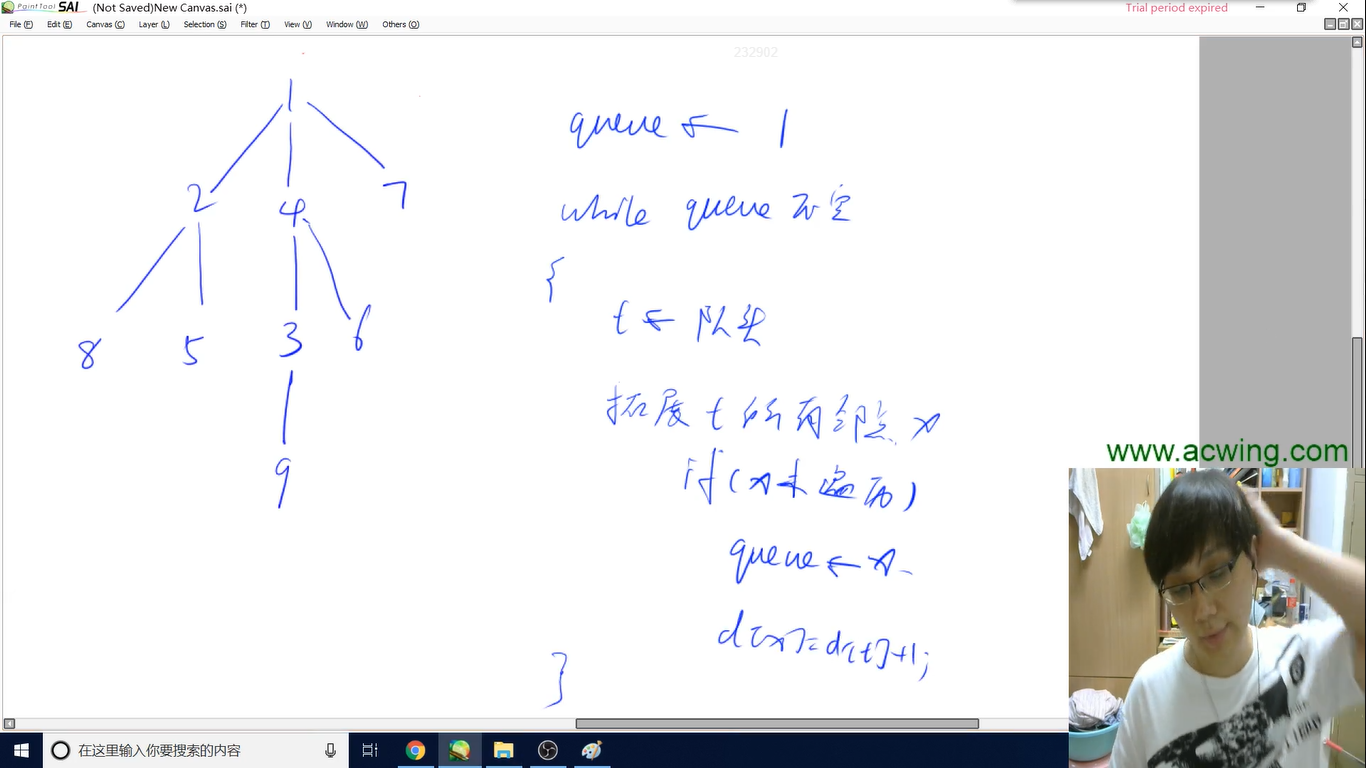 PaintTool SAI (Not Saved)New Canvas.sai (*)
Trial period expired
File (F) Edit (E) Canvas (C) Layer (L) Selection (S) Filter (T) View (V) Window (W) Others (O)
232902
1
2 4 7
8 5 3 6
9
queue ← 1
while queue 不空
{
t ← 队头
拓展 t 所有邻点 x
if (x未遍历)
queue ← x
d[x]=d[t]+1;
}
www.acwing.com
在这里输入你要搜索的内容